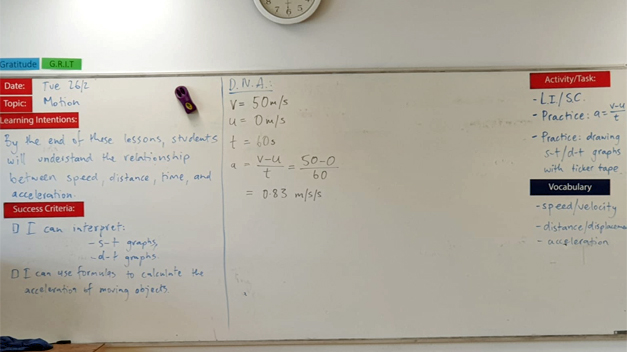 Gratitude G.R.I.T
Date: Tue 26/2
Topic: Motion
Learning Intentions:
By the end of these lessons, students
will understand the relationship
between speed, distance, time, and
acceleration.
Success Criteria:
I can interpret:
- s-t graphs
- d-t graphs
I can use formulas to calculate the
acceleration of moving objects.
D.N.A.:
V = 50m/s
u = 0m/s
t = 60s
a = v-u/t = 50-0/60
= 0.83 m/s/s
Activity/Task:
- L.I/S.C.
- Practice: a = v-u/t
- Practice: drawing
s-t/d-t graphs
with ticker tape.
Vocabulary
- speed/velocity
- distance/displacemen
- acceleration